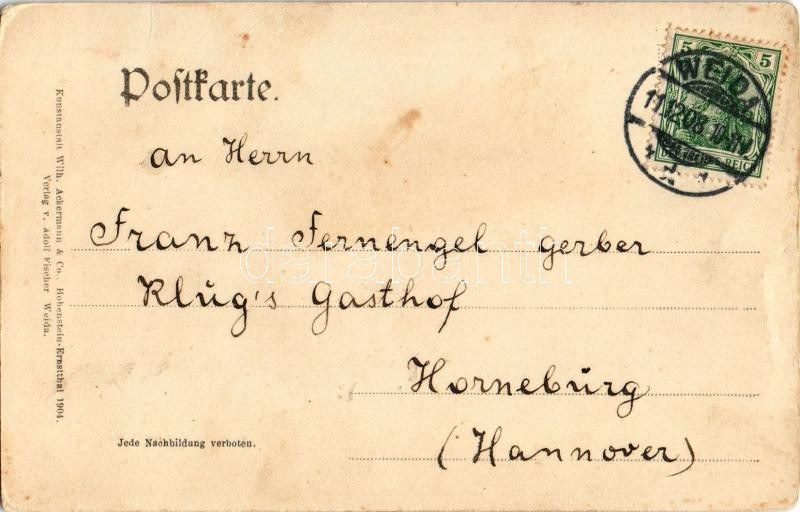 Postkarte.
an Herrn
Franz Fernengel gerber
Klug's Gasthof
Horneburg
(Hannover)
Jede Nachbildung verboten.
Kunstanstalt Wilh. Ackermann & Co., Hohenstein-Ernstthal 1904.
Verlag v. Adolf Fischer Weida.
5 5
REICH
WEIDA
11.12.08.
darabanth